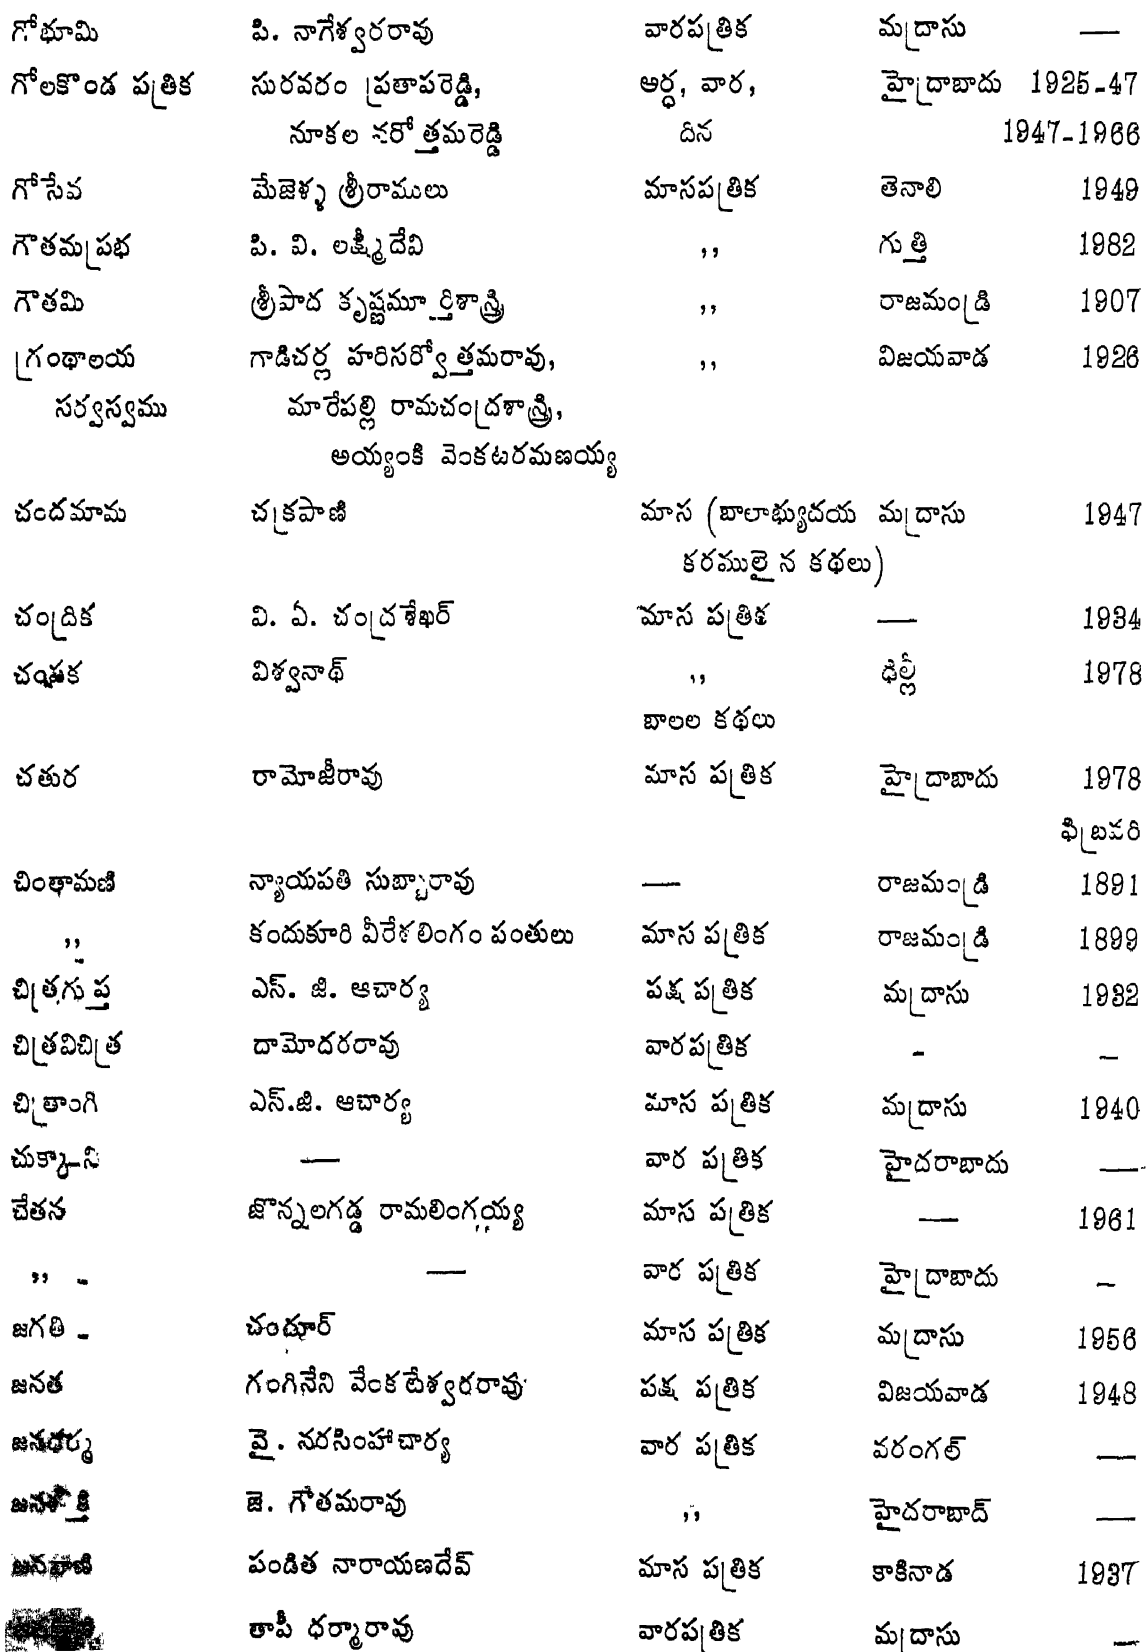 గోభూమి పి. నాగేశ్వరరావు వారపత్రిక మద్రాసు —
గోలకొండ పత్రిక సురవరం ప్రతాపరెడ్డి, ఆర్ధ, వార, హైద్రాబాదు 1925-47
నూకల నరోత్తమరెడ్డి దిన 1947-1966
గోసేవ మేజెళ్ళ శ్రీరాములు మాసపత్రిక తెనాలి 1949
గౌతమప్రభ పి. వి. లక్ష్మీదేవి ,, గుత్తి 1982
గౌతమి శ్రీపాద కృష్ణమూర్తిశాస్త్రి ,, రాజమండ్రి 1907
గ్రంథాలయ గాడిచర్ల హరిసర్వోత్తమరావు, ,, విజయవాడ 1926
సర్వస్వము మారేపల్లి రామచంద్రశాస్త్రి,
అయ్యంకి వెంకటరమణయ్య
చందమామ చక్రపాణి మాస (బాలాభ్యుదయ మద్రాసు 1947
కరములైన కథలు)
చంద్రిక వి. ఏ. చంద్రశేఖర్ మాస పత్రిక — 1934
చంపక విశ్వనాథ్ ,, ఢిల్లీ 1978
బాలల కథలు
చతుర రామోజీరావు మాస పత్రిక హైద్రాబాదు 1978
ఫిబ్రవరి
చింతామణి న్యాయపతి సుబ్బారావు — రాజమండ్రి 1891
,, కందుకూరి వీరేశలింగం పంతులు మాస పత్రిక రాజమండ్రి 1899
చిత్రగుప్త ఎస్. జి. ఆచార్య పక్ష పత్రిక మద్రాసు 1932
చిత్రవిచిత్ర దామోదరరావు వారపత్రిక - —
చిత్రాంగి ఎస్.జి. ఆచార్య మాస పత్రిక మద్రాసు 1940
చుక్కాని — వార పత్రిక హైదరాబాదు —
చేతన జొన్నలగడ్డ రామలింగయ్య మాస పత్రిక — 1961
,, - — వార పత్రిక హైద్రాబాదు —
జగతి - చందూర్ మాస పత్రిక మద్రాసు 1956
జనత గంగినేని వేంకటేశ్వరరావు పక్ష పత్రిక విజయవాడ 1948
జనధర్మ వై. నరసింహాచార్య వార పత్రిక వరంగల్ —
జనశక్తి జె. గౌతమరావు ,, హైదరాబాద్ —
జనవాణి పండిత నారాయణదేవ్ మాస పత్రిక కాకినాడ 1937
తాపీ ధర్మారావు వారపత్రిక మద్రాసు —